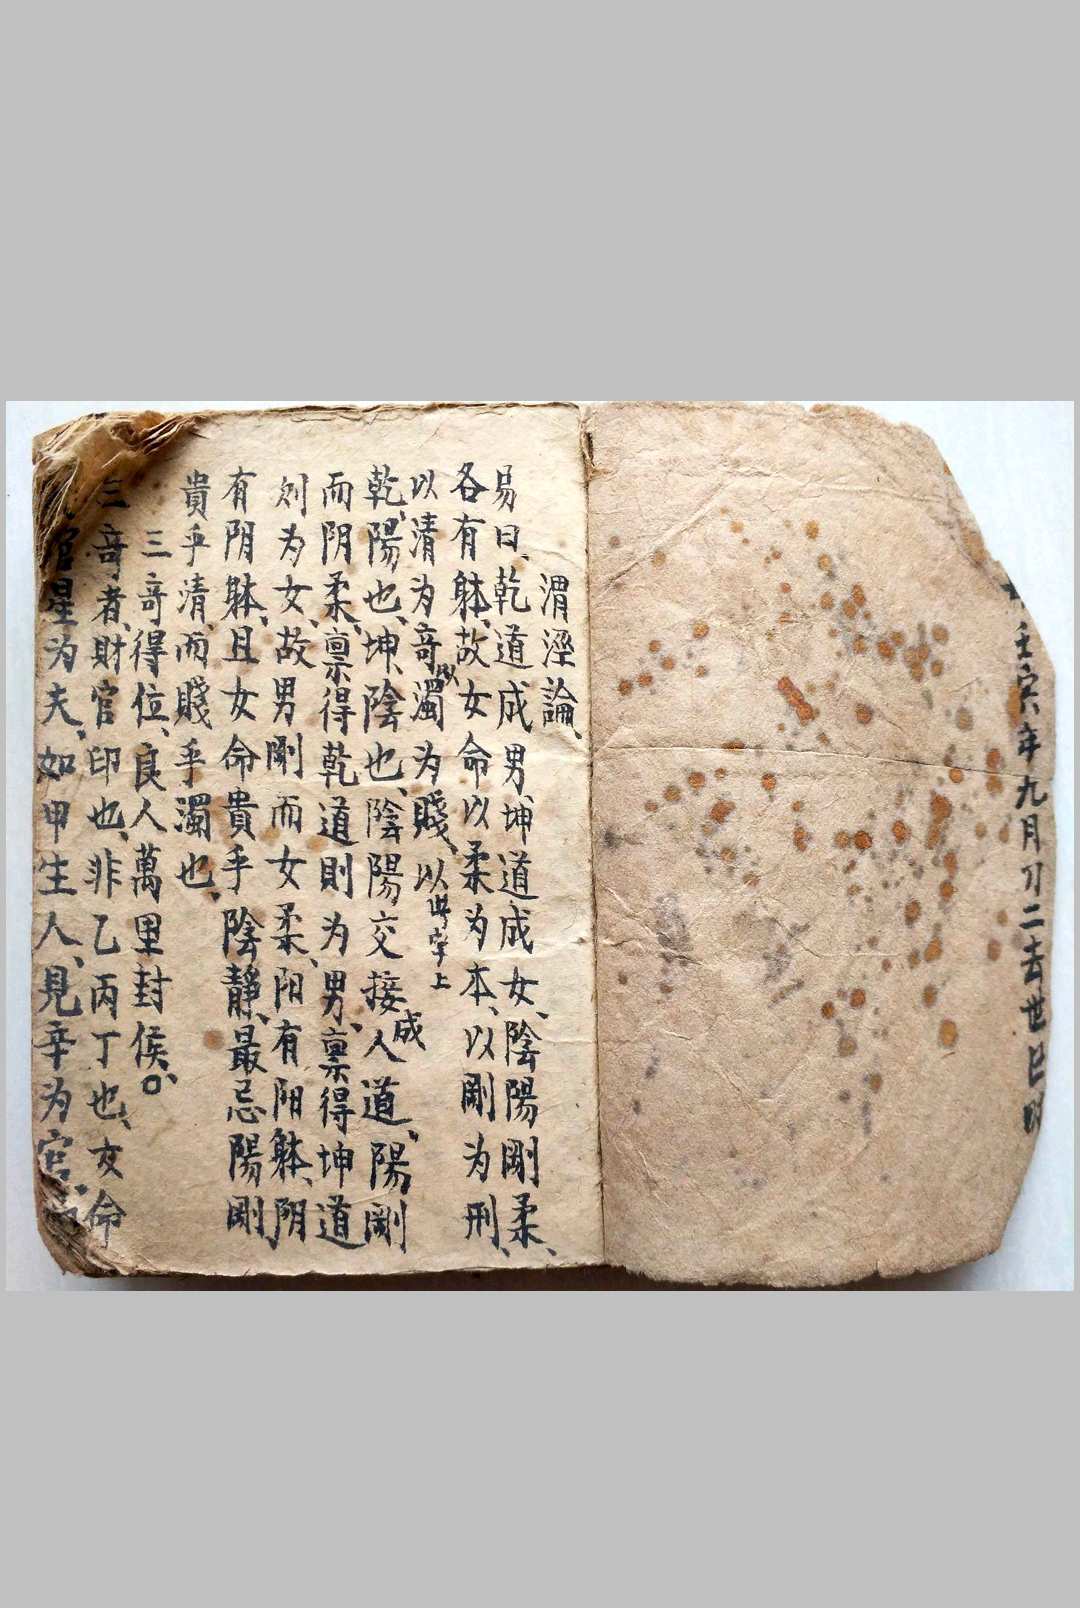 壬寅年九月初二去世巳時
渭涇論、
易曰、乾道成男、坤道成女、陰陽剛柔、
各有躰、故女命以柔为本、以剛为刑、
以清为奇、以濁为賤、以此字上
乾、陽也、坤、陰也、陰陽交接成人道、陽剛
而阴柔、禀得乾道則为男、禀得坤道
则为女、故男剛而女柔、阳有阳躰、阴
有阴躰、且女命貴乎陰靜、最忌陽剛
貴乎清、而賤乎濁也、
三奇得位、良人萬里封侯○、
三奇者、財官印也、非乙丙丁也、女命
官星为夫、如甲生人、見辛为官、